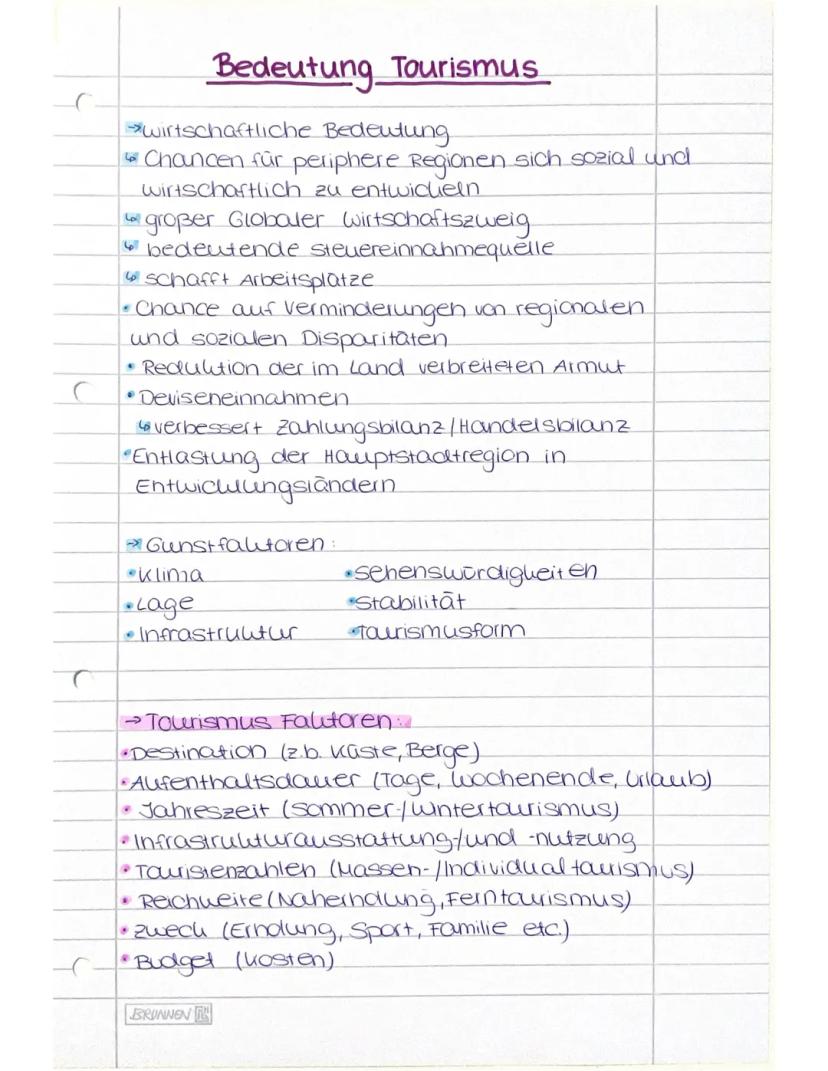 Bedeutung Tourismus
→wirtschaftliche Bedeutung
↳ Chancen für periphere Regionen sich sozial und
wirtschaftlich zu entwickeln
↳ großer Globaler Wirtschaftszweig
↳ bedeutende steuereinnahmequelle
↳ schafft Arbeitsplätze
• Chance auf Verminderungen von regionalen
und sozialen Disparitäten
• Reduktion der im Land verbreiteten Armut
• Deviseneinnahmen
↳ verbessert Zahlungsbilanz/Handelsbilanz
• Entlastung der Hauptstadtregion in
Entwicklungsländern
→ Gunstfaktoren:
• Klima • Sehenswürdigkeiten
• Lage • Stabilität
• Infrastruktur • Tourismusform
→ Tourismus Faktoren:
• Destination (z.b. Küste, Berge)
• Aufenthaltsdauer (Tage, Wochenende, Urlaub)
• Jahreszeit (Sommer-/Wintertourismus)
• Infrastrukturausstattung-/und -nutzung
• Touristenzahlen (Massen-/Individualtourismus)
• Reichweite (Naherholung, Ferntourismus)
• Zweck (Erholung, Sport, Familie etc.)
• Budget (Kosten)
BRUNNEN